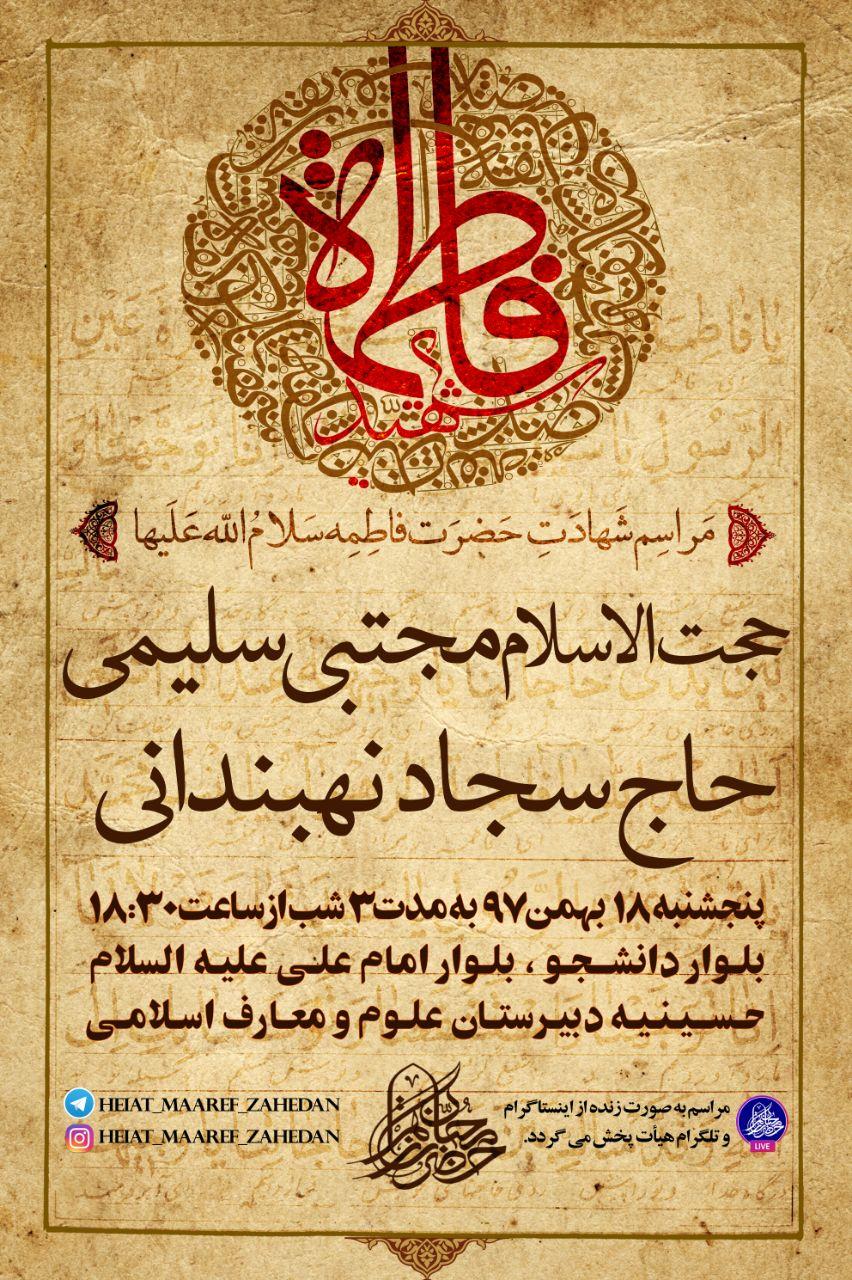 فاطمة
شهیدة
مَراسِم شَهادَتِ حَضرَت فاطِمِه سَلامُ الله عَلَیها
حجت الاسلام مجتبی سلیمی
حاج سجاد نهبندانی
پنجشنبه ۱۸ بهمن ۹۷ به مدت ۳ شب از ساعت ۱۸:۳۰
بلوار دانشجو ، بلوار امام علی علیه السلام
حسینیه دبیرستان علوم و معارف اسلامی
مراسم به صورت زنده از اینستاگرام
و تلگرام هیأت پخش می گردد.
LIVE
HEIAT_MAAREF_ZAHEDAN
HEIAT_MAAREF_ZAHEDAN